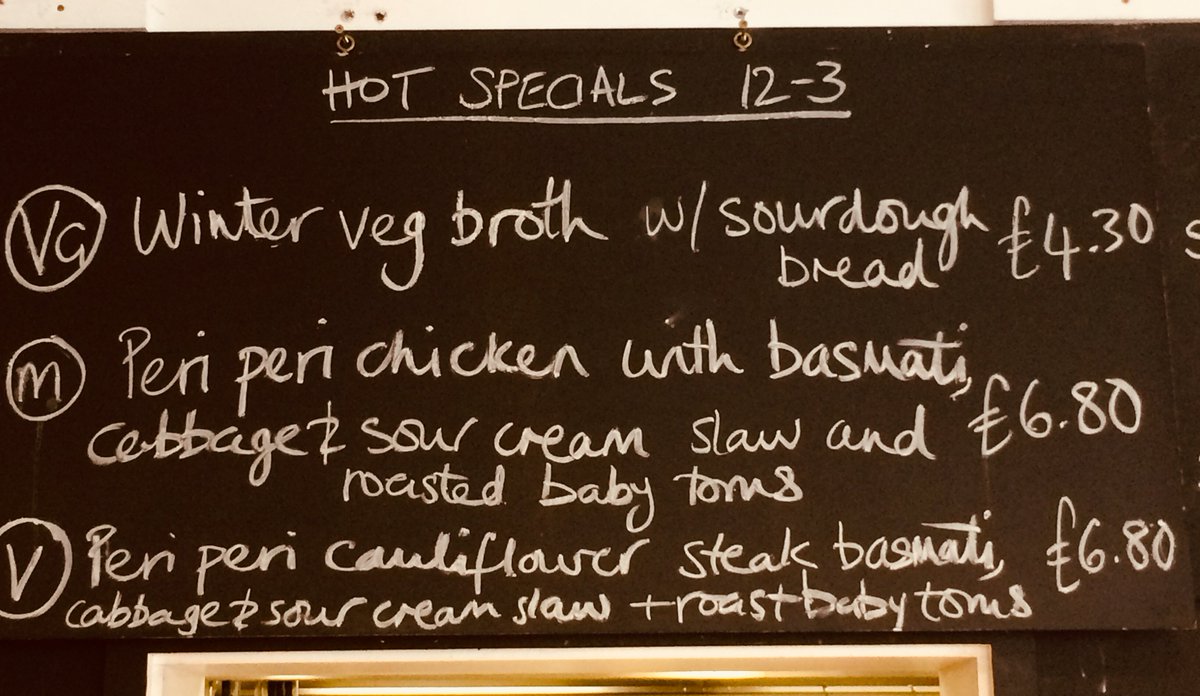 HOT SPECIALS 12-3
Vg Winter veg broth w/ sourdough £4.30
bread
m Peri peri chicken with basmati,
cabbage & sour cream slaw and £6.80
roasted baby toms
V Peri peri cauliflower steak basmati, £6.80
cabbage & sour cream slaw + roast baby toms